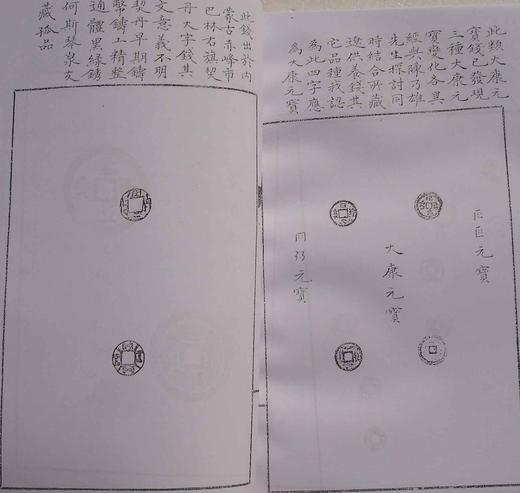 此類大康元
寶錢已發現
三種大康元
寶變化各異
經與陳乃雄
先生探討同
時結合所藏
遼供養錢其
它品種我認
為此四字應
為大康元寶
元寶
大康元寶
元寶
此錢出於內
蒙古赤峰市
巴林右旗契
丹大字錢其
文意義不明
契丹早期鑄
幣鑄工精整
通體黑綠鏽
何斯琴泉友
藏孤品